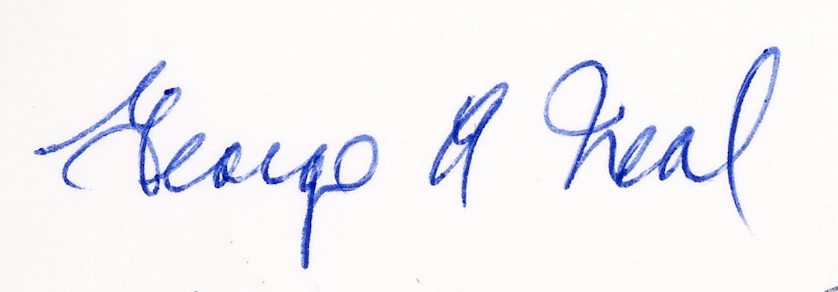 George A Neal